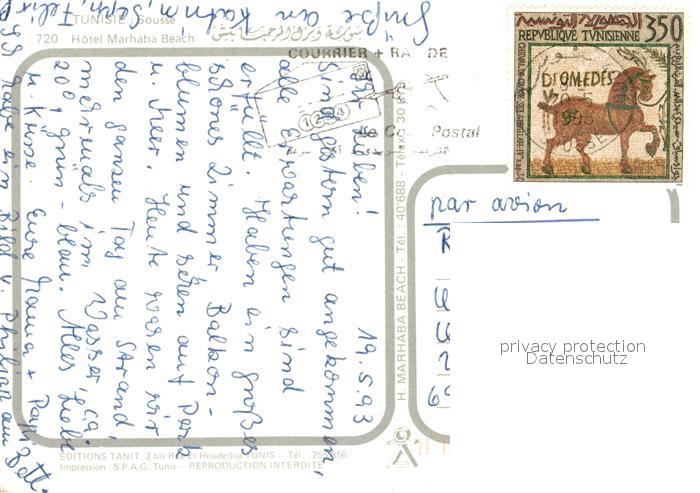 TUNISIE, Sousse
720 Hôtel Marhaba Beach
سوسة - نزل المرحبا بيتش
COURRIER + RA DE
Le Co Postal
350
REPVBLIQVE TVNISIENNE
الجمهورية التونسية
DIOMEDES
par avion
19.5.93
Ihr Lieben!
Sind gestern gut angekommen,
alle Erwartungen sind
erfüllt. Haben ein großes
schönes Zimmer, Balkon-
blumen und sehen auf Park
u. Meer. Heute waren wir
den ganzen Tag am Strand,
mehrmals im Wasser, ca.
20°, grün-blau. Alles Liebe
u. Küsse Eure Mama + Papi
PS habe ein Bild v. am Bett.
Grüße an Katrin, Seph, Felix
H. MARHABA BEACH - Tél. : 40'688 - Télex 30
EDITIONS TANIT, 3 bis Rue El Houdeibia TUNIS - Tél. : 25 656
Impression : S.P.A.G. Tunis - REPRODUCTION INTERDITE
privacy protection
Datenschutz